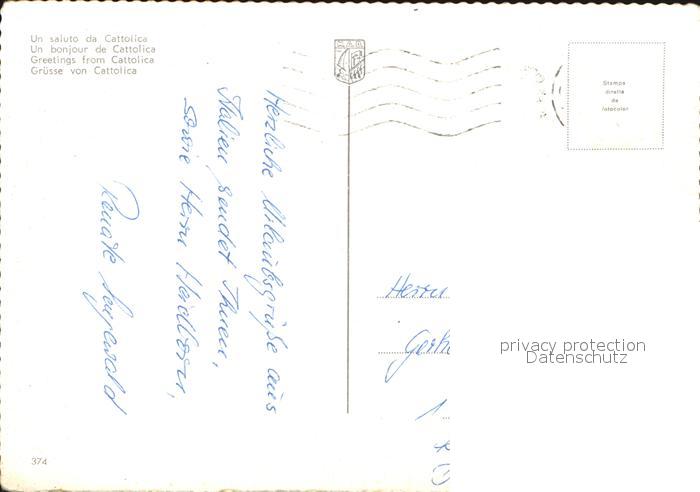 Un saluto da Cattolica
Un bonjour de Cattolica
Greetings from Cattolica
Grüsse von Cattolica
Stampa
diretta
da
fotocolor
Herzliche Urlaubsgrüße aus
Italien sendet Ihnen,
sowie Herrn
Renate
Herrn
Gerh
privacy protection
Datenschutz
374